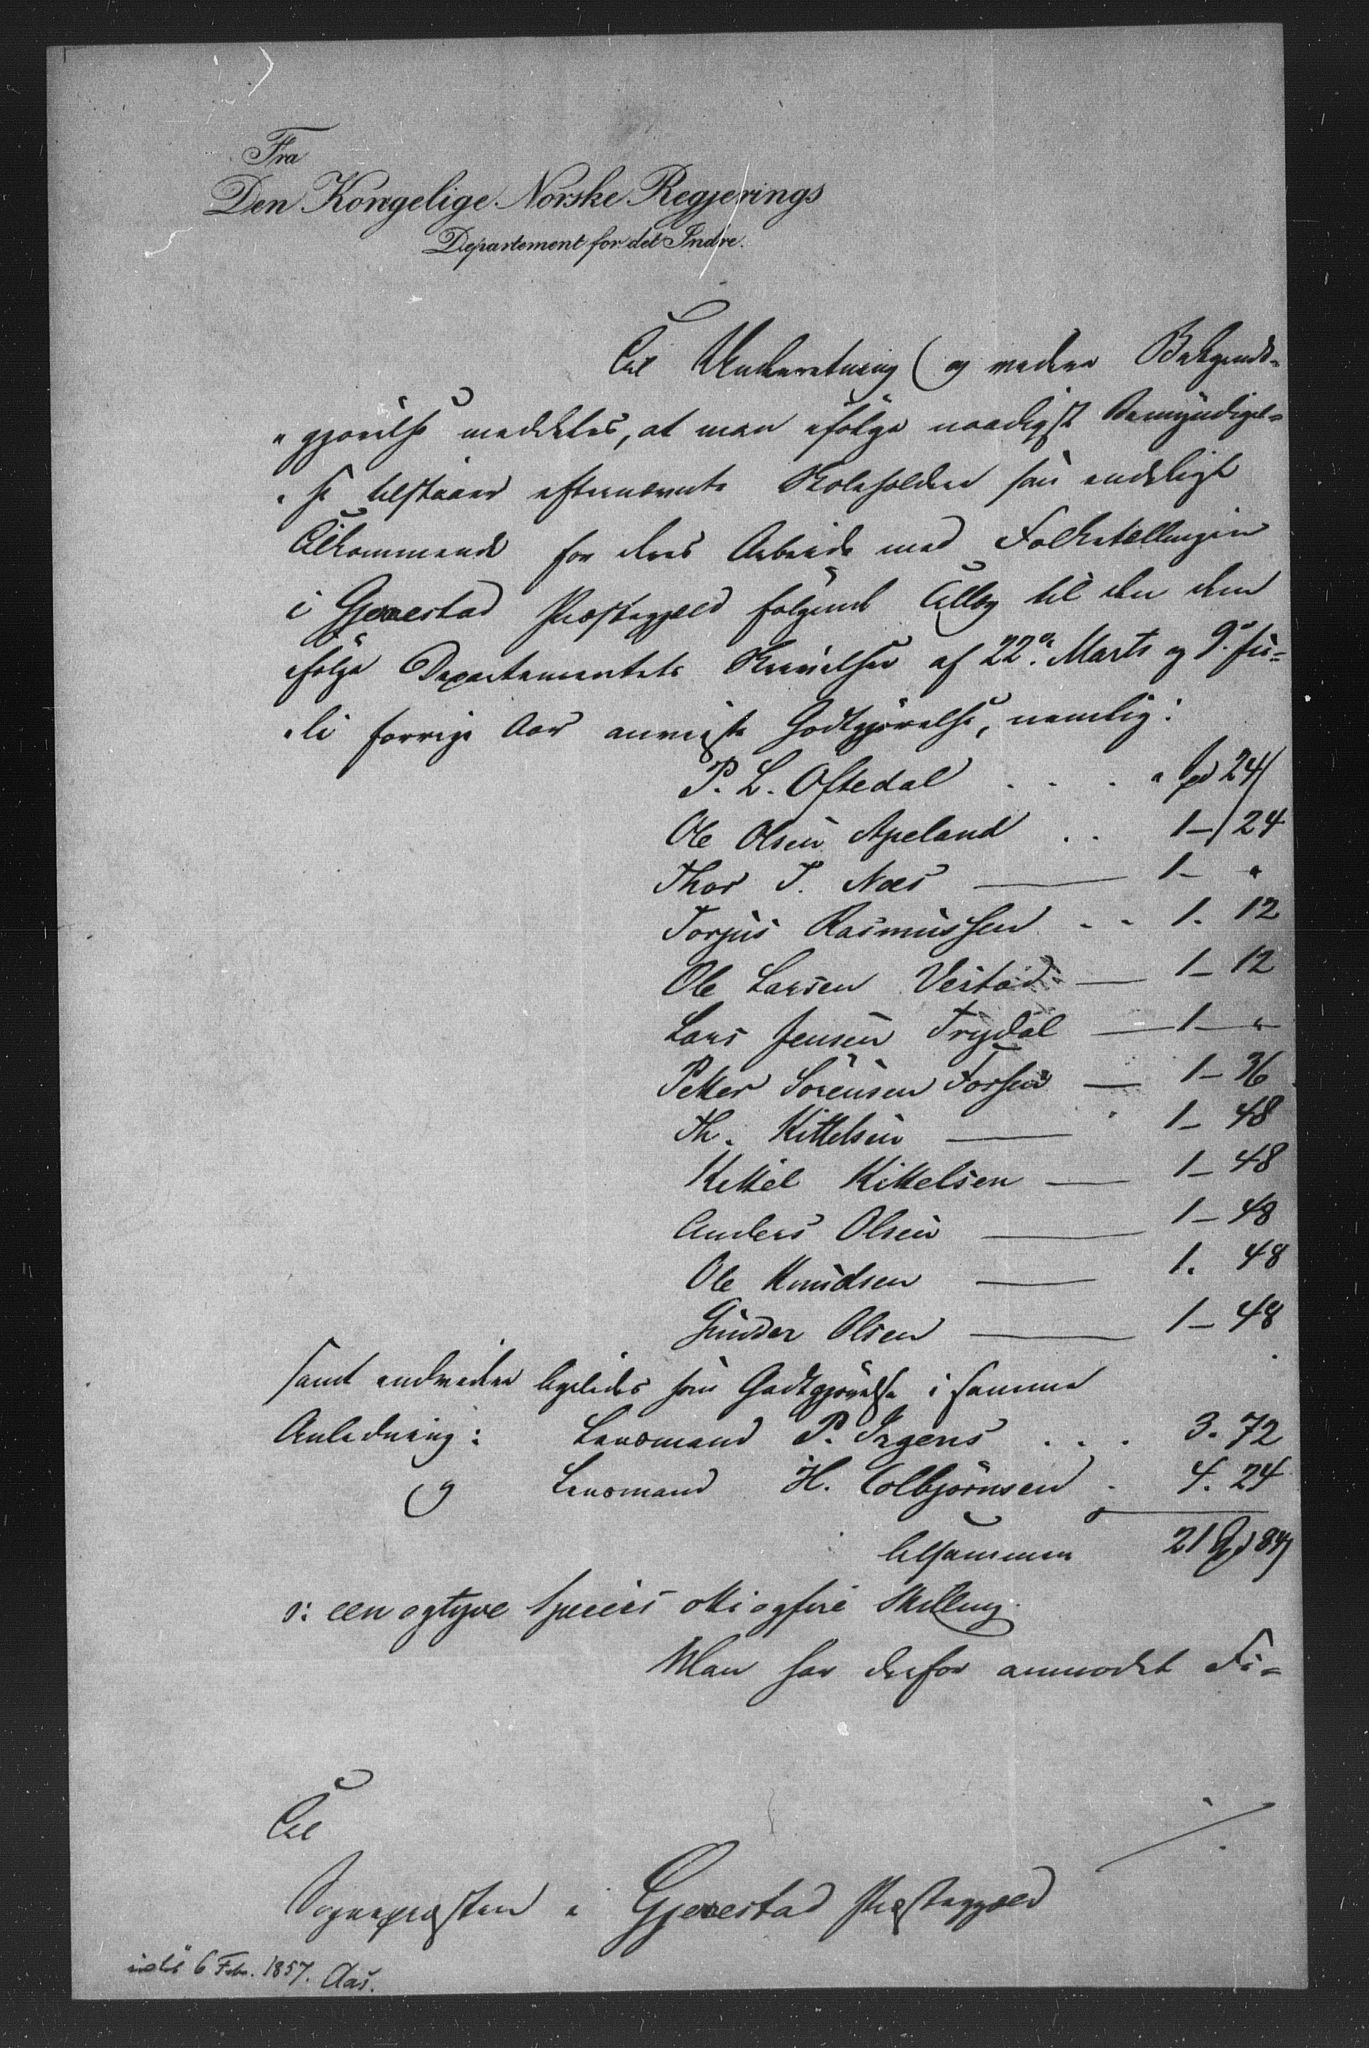 Fra
Den Kongelige Norske Regjerings
Departement for det Indre.
Til Underretning og videre Bekjendt-
gjørelse meddeles, at man ifølge naadigst Bemyndigel-
se tilstaaer efternævnte Skoleholdere som endeligt
Tilkommende for deres Arbeide med Folketællingen
i Gjerrestad Præstegjeld følgende Tillæg til den dem
ifølge Departementets Skrivelser af 22de Marts og 9de Ju-
li forrige Aar anviiste Godtgjørelse, nemlig:
P. L. Oftedal . . . " Spd 24
Ole Olsen Apeland . . 1 - 24
Thor T. Næs — 1 - "
Torjus Rasmussen . . 1. 12
Ole Larsen Vestad — 1 - 12
Lars Jensen Trydal — 1 - "
Petter Sørensen — 1 - 36
Th. Kittelsen — 1 - 48
Kittel Kittelsen — 1 - 48
Anders Olsen — 1 - 48
Ole Knudsen — 1. 48
Gunder Olsen — 1 - 48
samt endvidere ligeledes som Godtgjørelse i samme
Anledning: Lensmand P. Irgens . . . 3. 72
og Lensmand H. Colbjørnsen . 4. 24
tilsammen 21 Spd 84
ɔ: een og tyve Species otti og fire Skilling.
Man har derfor anmodet Fi-
Til
Sognepræsten i Gjerrestad Præstegjeld
6 Febr. 1857. Aas.